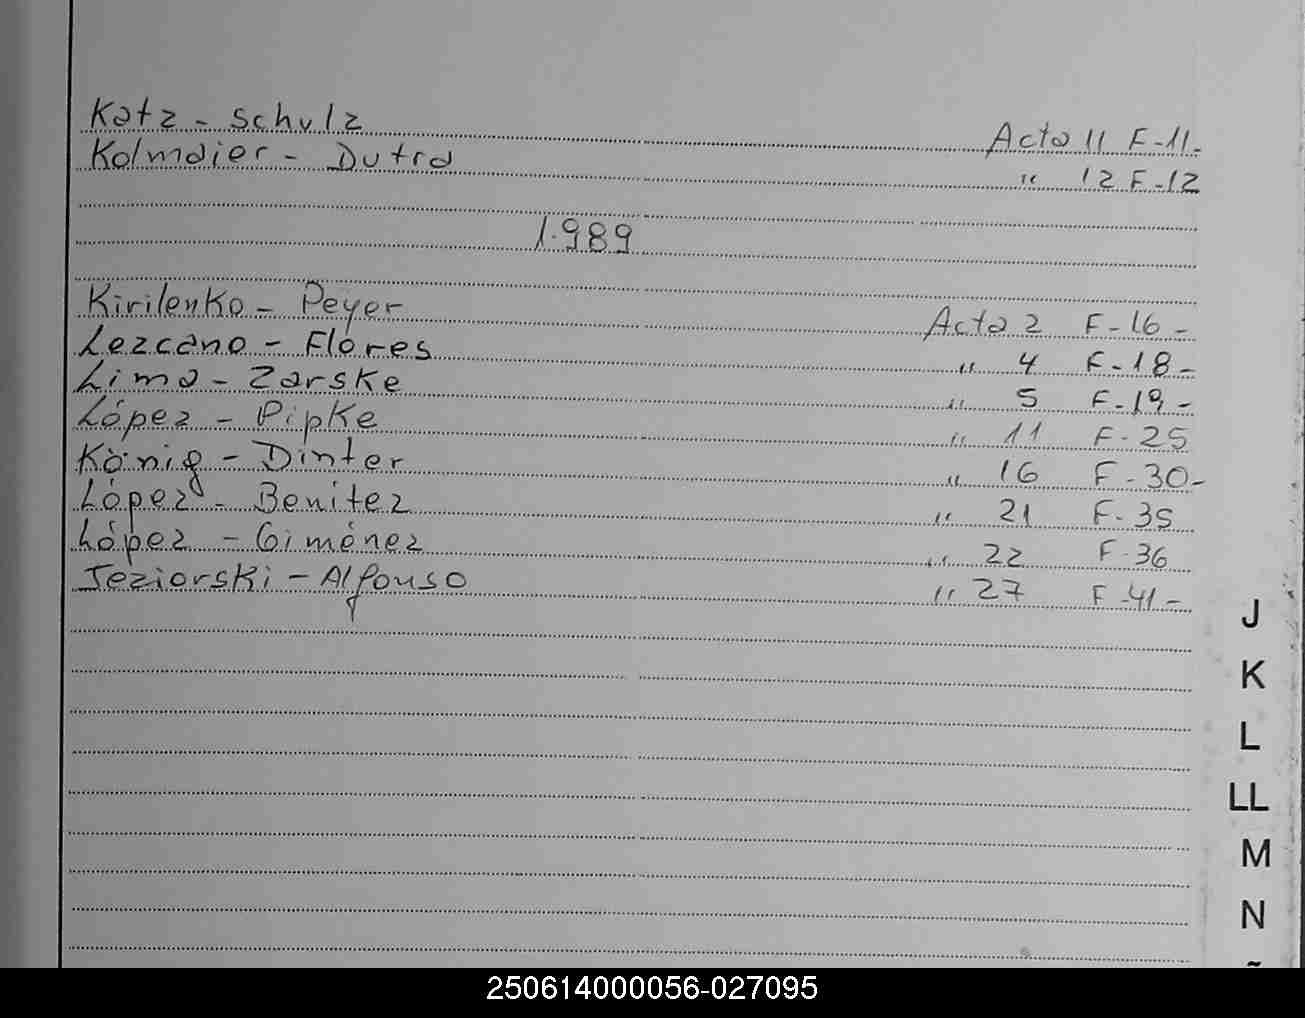 Katz - Schulz Acta 11 F-11-
Kolmaier - Dutra " 12 F-12
1.989
Kirilenko - Peyer Acta 2 F-16-
Lezcano - Flores " 4 F-18-
Lima - Zarske " 5 F-19-
López - Pipke " 11 F-25
König - Dinter " 16 F-30-
López - Benitez " 21 F-35
López - Giménez " 22 F-36
Jeziorski - Alfonso " 27 F-41-
J
K
L
LL
M
N
250614000056-027095